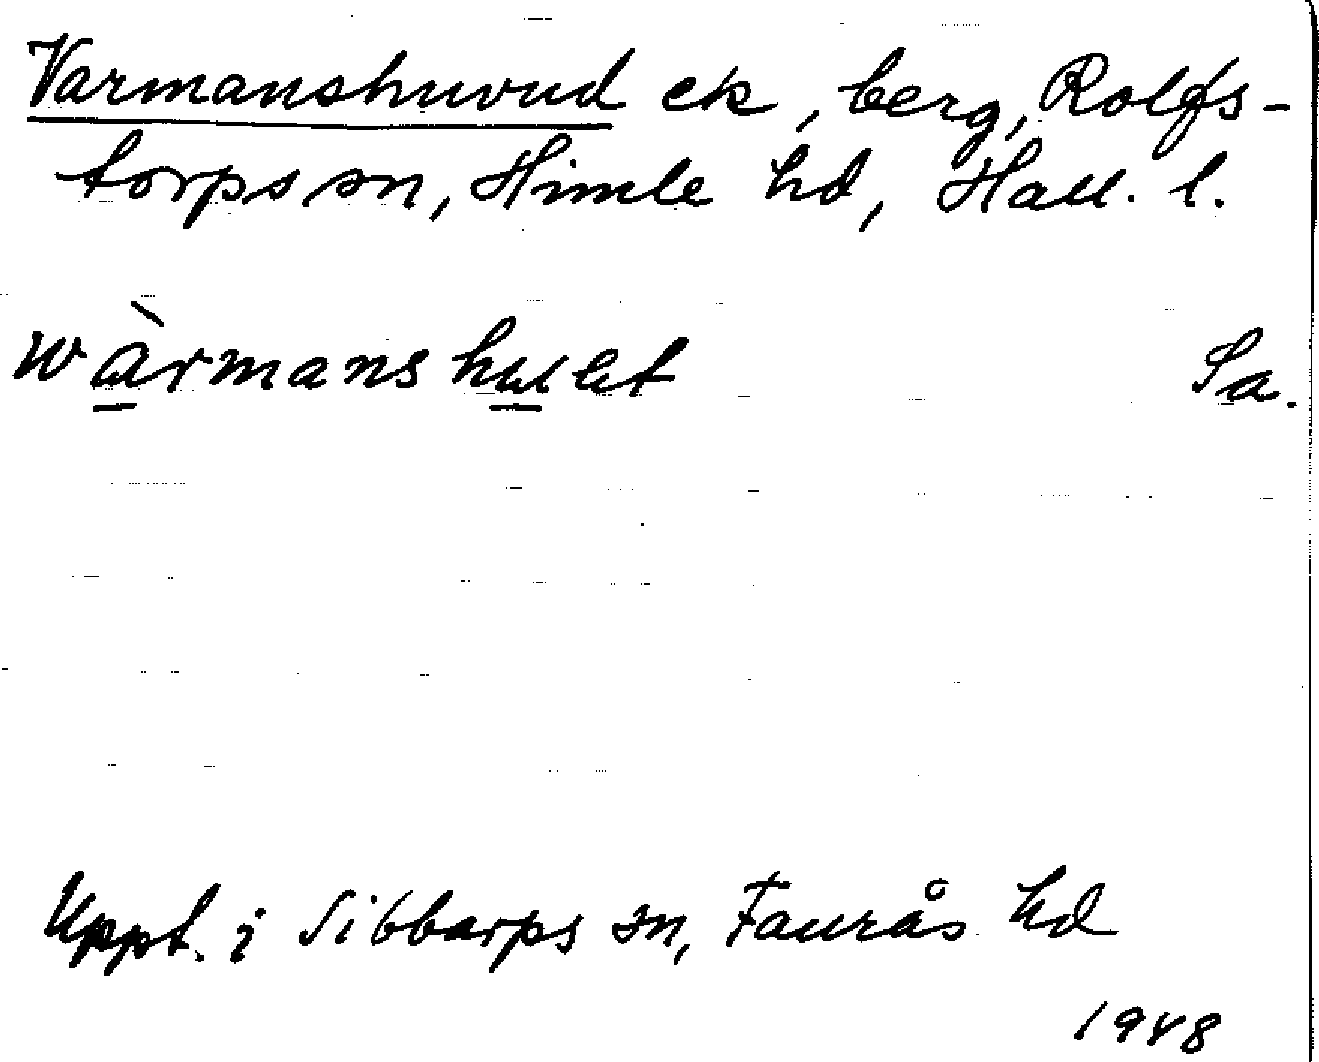 Varmanshuvud ek, berg, Rolfs-
torps sn, Himle hd, Hall. l.
wàrmans hu̲et Sa.
Uppt. i Sibbarps sn, Faurås hd
1948